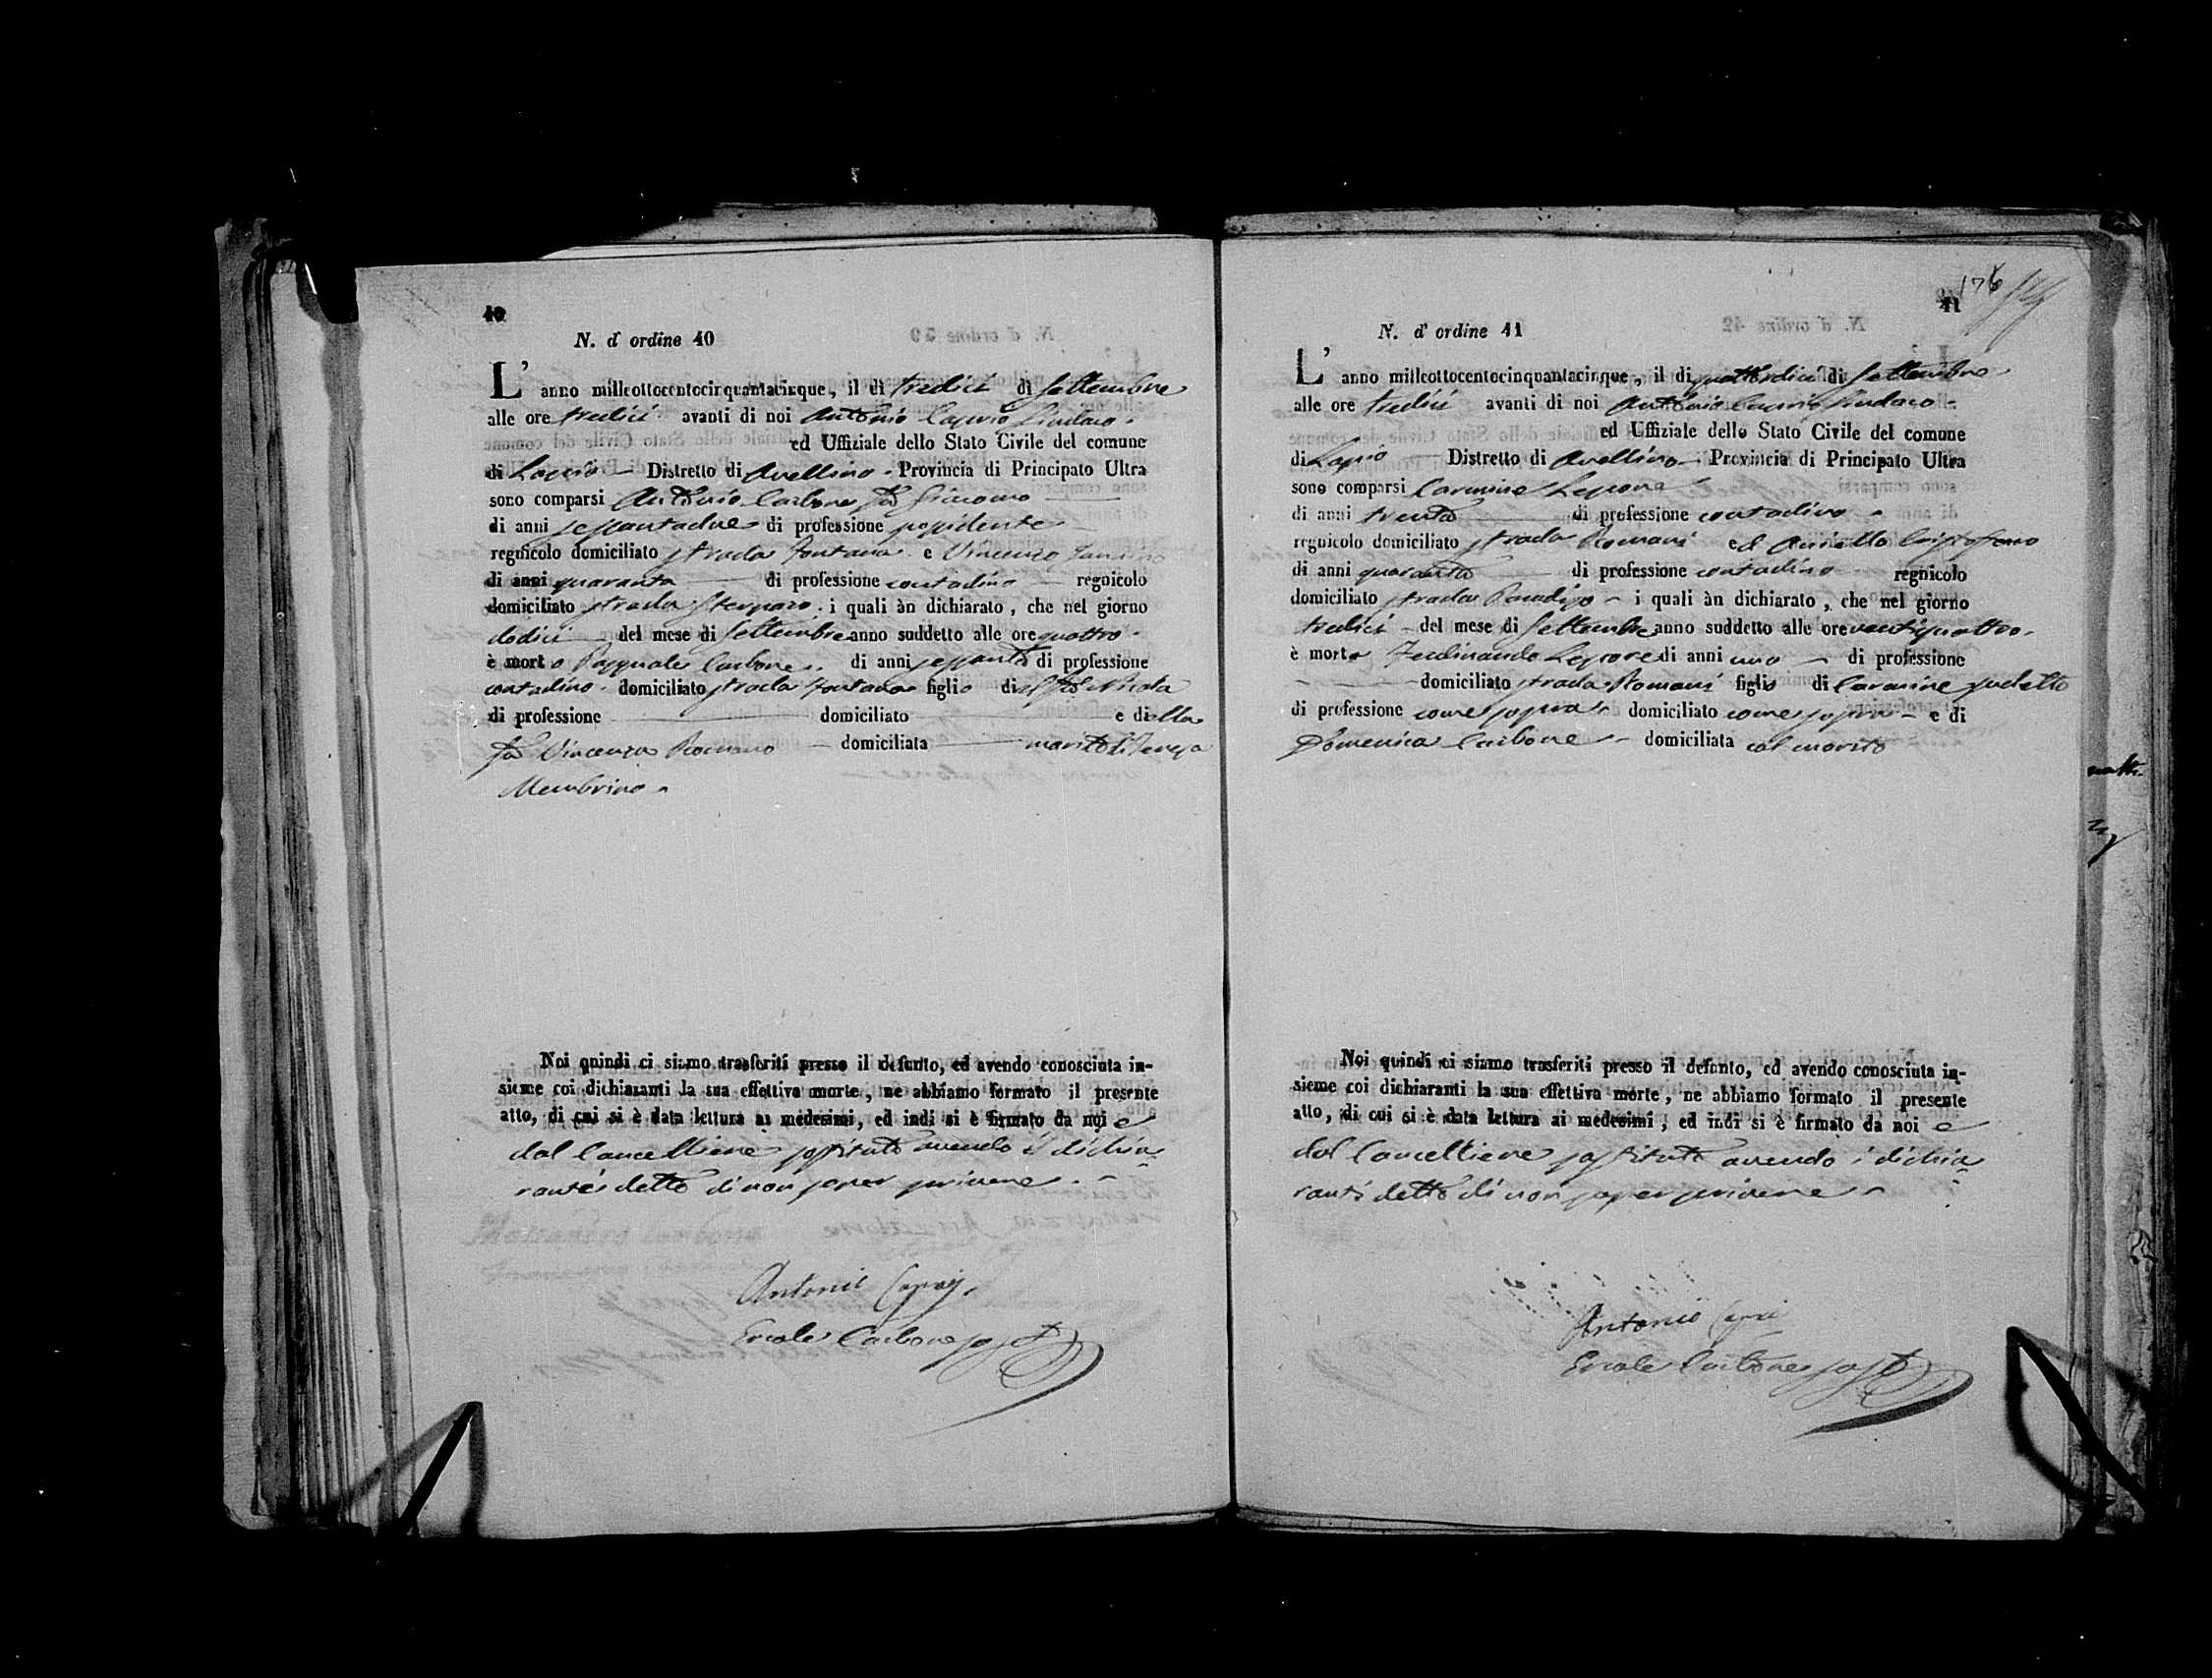 40
N. d' ordine 40
L' anno millottocentocinquantacinque, il dì tredici di Settembre
alle ore tredici avanti di noi Antonio Caprio Sindaco
ed Uffiziale dello Stato Civile del comune
di Lapio Distretto di Avellino Provincia di Principato Ultra
sono comparsi Antonio Carbone fu Giacomo
di anni sessantadue di professione possidente
regnicolo domiciliato strada Fontana e Vincenzo
di anni quaranta di professione contadino regnicolo
domiciliato strada i quali àn dichiarato, che nel giorno
dodici del mese di Settembre anno suddetto alle ore quattro
è morto Pasquale Carbone di anni sessanta di professione
contadino domiciliato strada Fontana figlio del fu Nicola
di professione domiciliato e della
fu Vincenza Romano domiciliata marito di Teresa
Membrino
Noi quindi ci siamo trasferiti presso il defunto, ed avendo conosciuta in-
sieme coi dichiaranti la sua effettiva morte, ne abbiamo formato il presente
atto, di cui si è data lettura ai medesimi, ed indi si è firmato da noi e
dal Cancelliere sostituto avendo i dichia
ranti detto di non saper scrivere
Antonio
Ercole Carbone sost
176
41
N. d' ordine 41
L' anno millottocentocinquantacinque, il di quattordici di Settembre
alle ore tredici avanti di noi Antonio Caprio Sindaco
ed Uffiziale dello Stato Civile del comune
di Lapio Distretto di Avellino Provincia di Principato Ultra
sono comparsi Carmine Lepore
di anni trenta di professione contadino
regnicolo domiciliato strada Romani ed Aniello Cristofano
di anni quaranta di professione contadino regnicolo
domiciliato strada Paradiso i quali àn dichiarato, che nel giorno
tredici del mese di Settembre anno suddetto alle ore ventiquattro
è morto Ferdinando Lepore di anni uno di professione
domiciliato strada Romani figlio di Carmine sudetto
di professione come sopra domiciliato come sopra e di
Domenica Carbone domiciliata col marito
Noi quindi ci siamo trasferiti presso il defunto, ed avendo conosciuta in-
sieme coi dichiaranti la sua effettiva morte, ne abbiamo formato il presente
atto, di cui si è data lettura ai medesimi, ed indi si è firmato da noi e
dal Cancelliere sostituto avendo i dichia
ranti detto di non saper scrivere
Antonio
Ercole Carbone sost